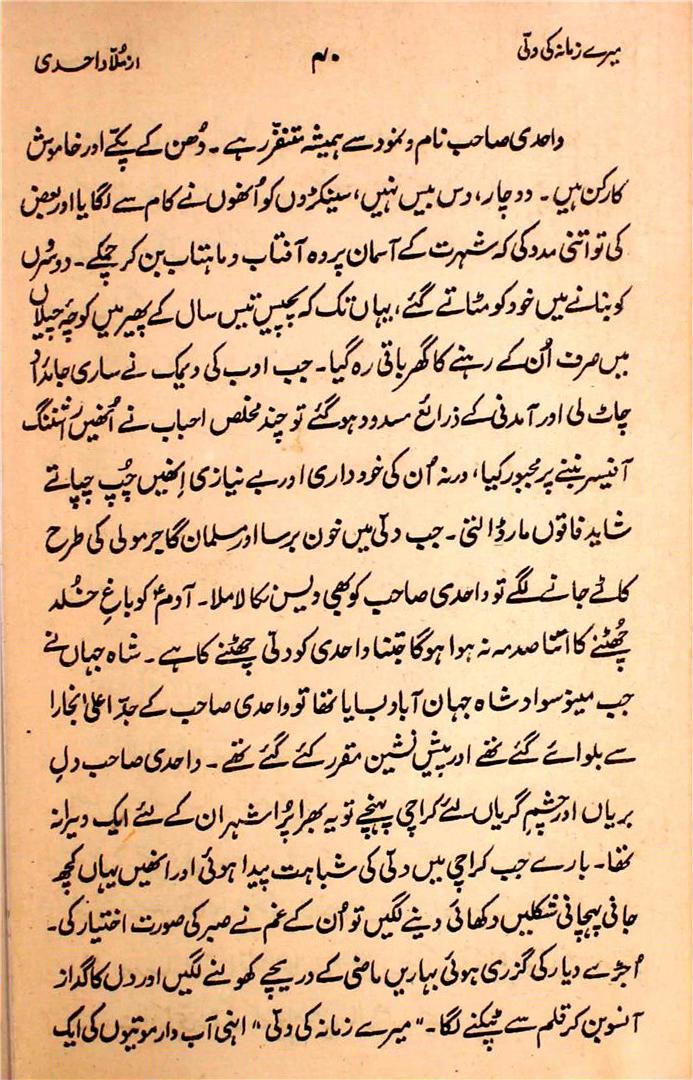 میرے زمانہ کی دلّی ۴۰ از مُلّا واحدی
واحدی صاحب نام و نمود سے ہمیشہ متنفّر رہے ۔ دُھن کے پکّے اور خاموش
کارکن ہیں ۔ دو چار ، دس بیس نہیں ، سینکڑوں کو اُنھوں نے کام سے لگایا اور بعض
کی تو اتنی مدد کی کہ شہرت کے آسمان پر وہ آفتاب و ماہتاب بن کر چمکے ۔ دوسروں
کو بنانے میں خود کو مٹاتے گئے ، یہاں تک کہ پچیس تیس سال کے پھیر میں کوچۂ چیلاں
میں صرف اُن کے رہنے کا گھر باقی رہ گیا ۔ جب ادب کی دیمک نے ساری جائداد
چاٹ لی اور آمدنی کے ذرائع مسدود ہو گئے تو چند مخلص احباب نے اُنھیں راشننگ
آفیسر بننے پر مجبور کیا ، ورنہ اُن کی خودداری اور بے نیازی اِنھیں چُپ چپاتے
شاید فاقوں مار ڈالتی ۔ جب دلّی میں خون برسا اور مسلمان گاجر مولی کی طرح
کاٹے جانے لگے تو واحدی صاحب کو بھی دیس نکالا ملا ۔ آدمؑ کو باغِ خُلد
چُھٹنے کا اتنا صدمہ نہ ہوا ہوگا جتنا واحدی کو دلّی چھٹنے کا ہے ۔ شاہ جہاں نے
جب مینو سواد شاہ جہان آباد بسایا تھا تو واحدی صاحب کے جدِّ اعلیٰ بخارا
سے بلوائے گئے تھے اور پیش نشین مقرر کئے گئے تھے ۔ واحدی صاحب دلِ
بریاں اور چشمِ گریاں لئے کراچی پہنچے تو یہ بھرا پُرا شہر ان کے لئے ایک ویرانہ
تھا ۔ بارے جب کراچی میں دلّی کی شباہت پیدا ہوئی اور انھیں یہاں کچھ
جانی پہچانی شکلیں دکھائی دینے لگیں تو اُن کے غم نے صبر کی صورت اختیار کی ۔
اُجڑے دیار کی گزری ہوئی بہاریں ماضی کے دریچے کھولنے لگیں اور دل کا گداز
آنسو بن کر قلم سے ٹپکنے لگا ۔ " میرے زمانہ کی دلّی " اِنہی آب دار موتیوں کی ایک